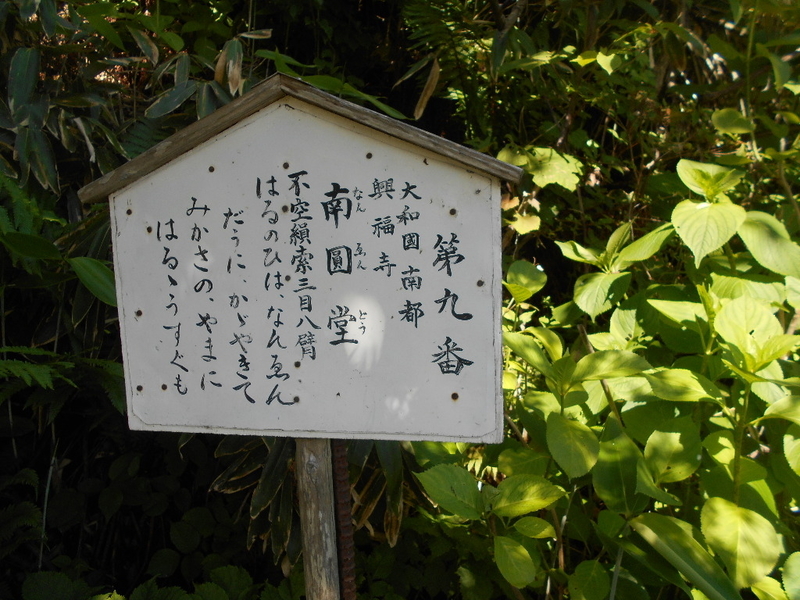 第九番
大和國南都
興福寺
南圓堂
なんゑんどう
不空絹索三目八臂
はるのひは、なんゑん
だうに、かゞやきて
みかさの、やまに
はるゝうすぐも